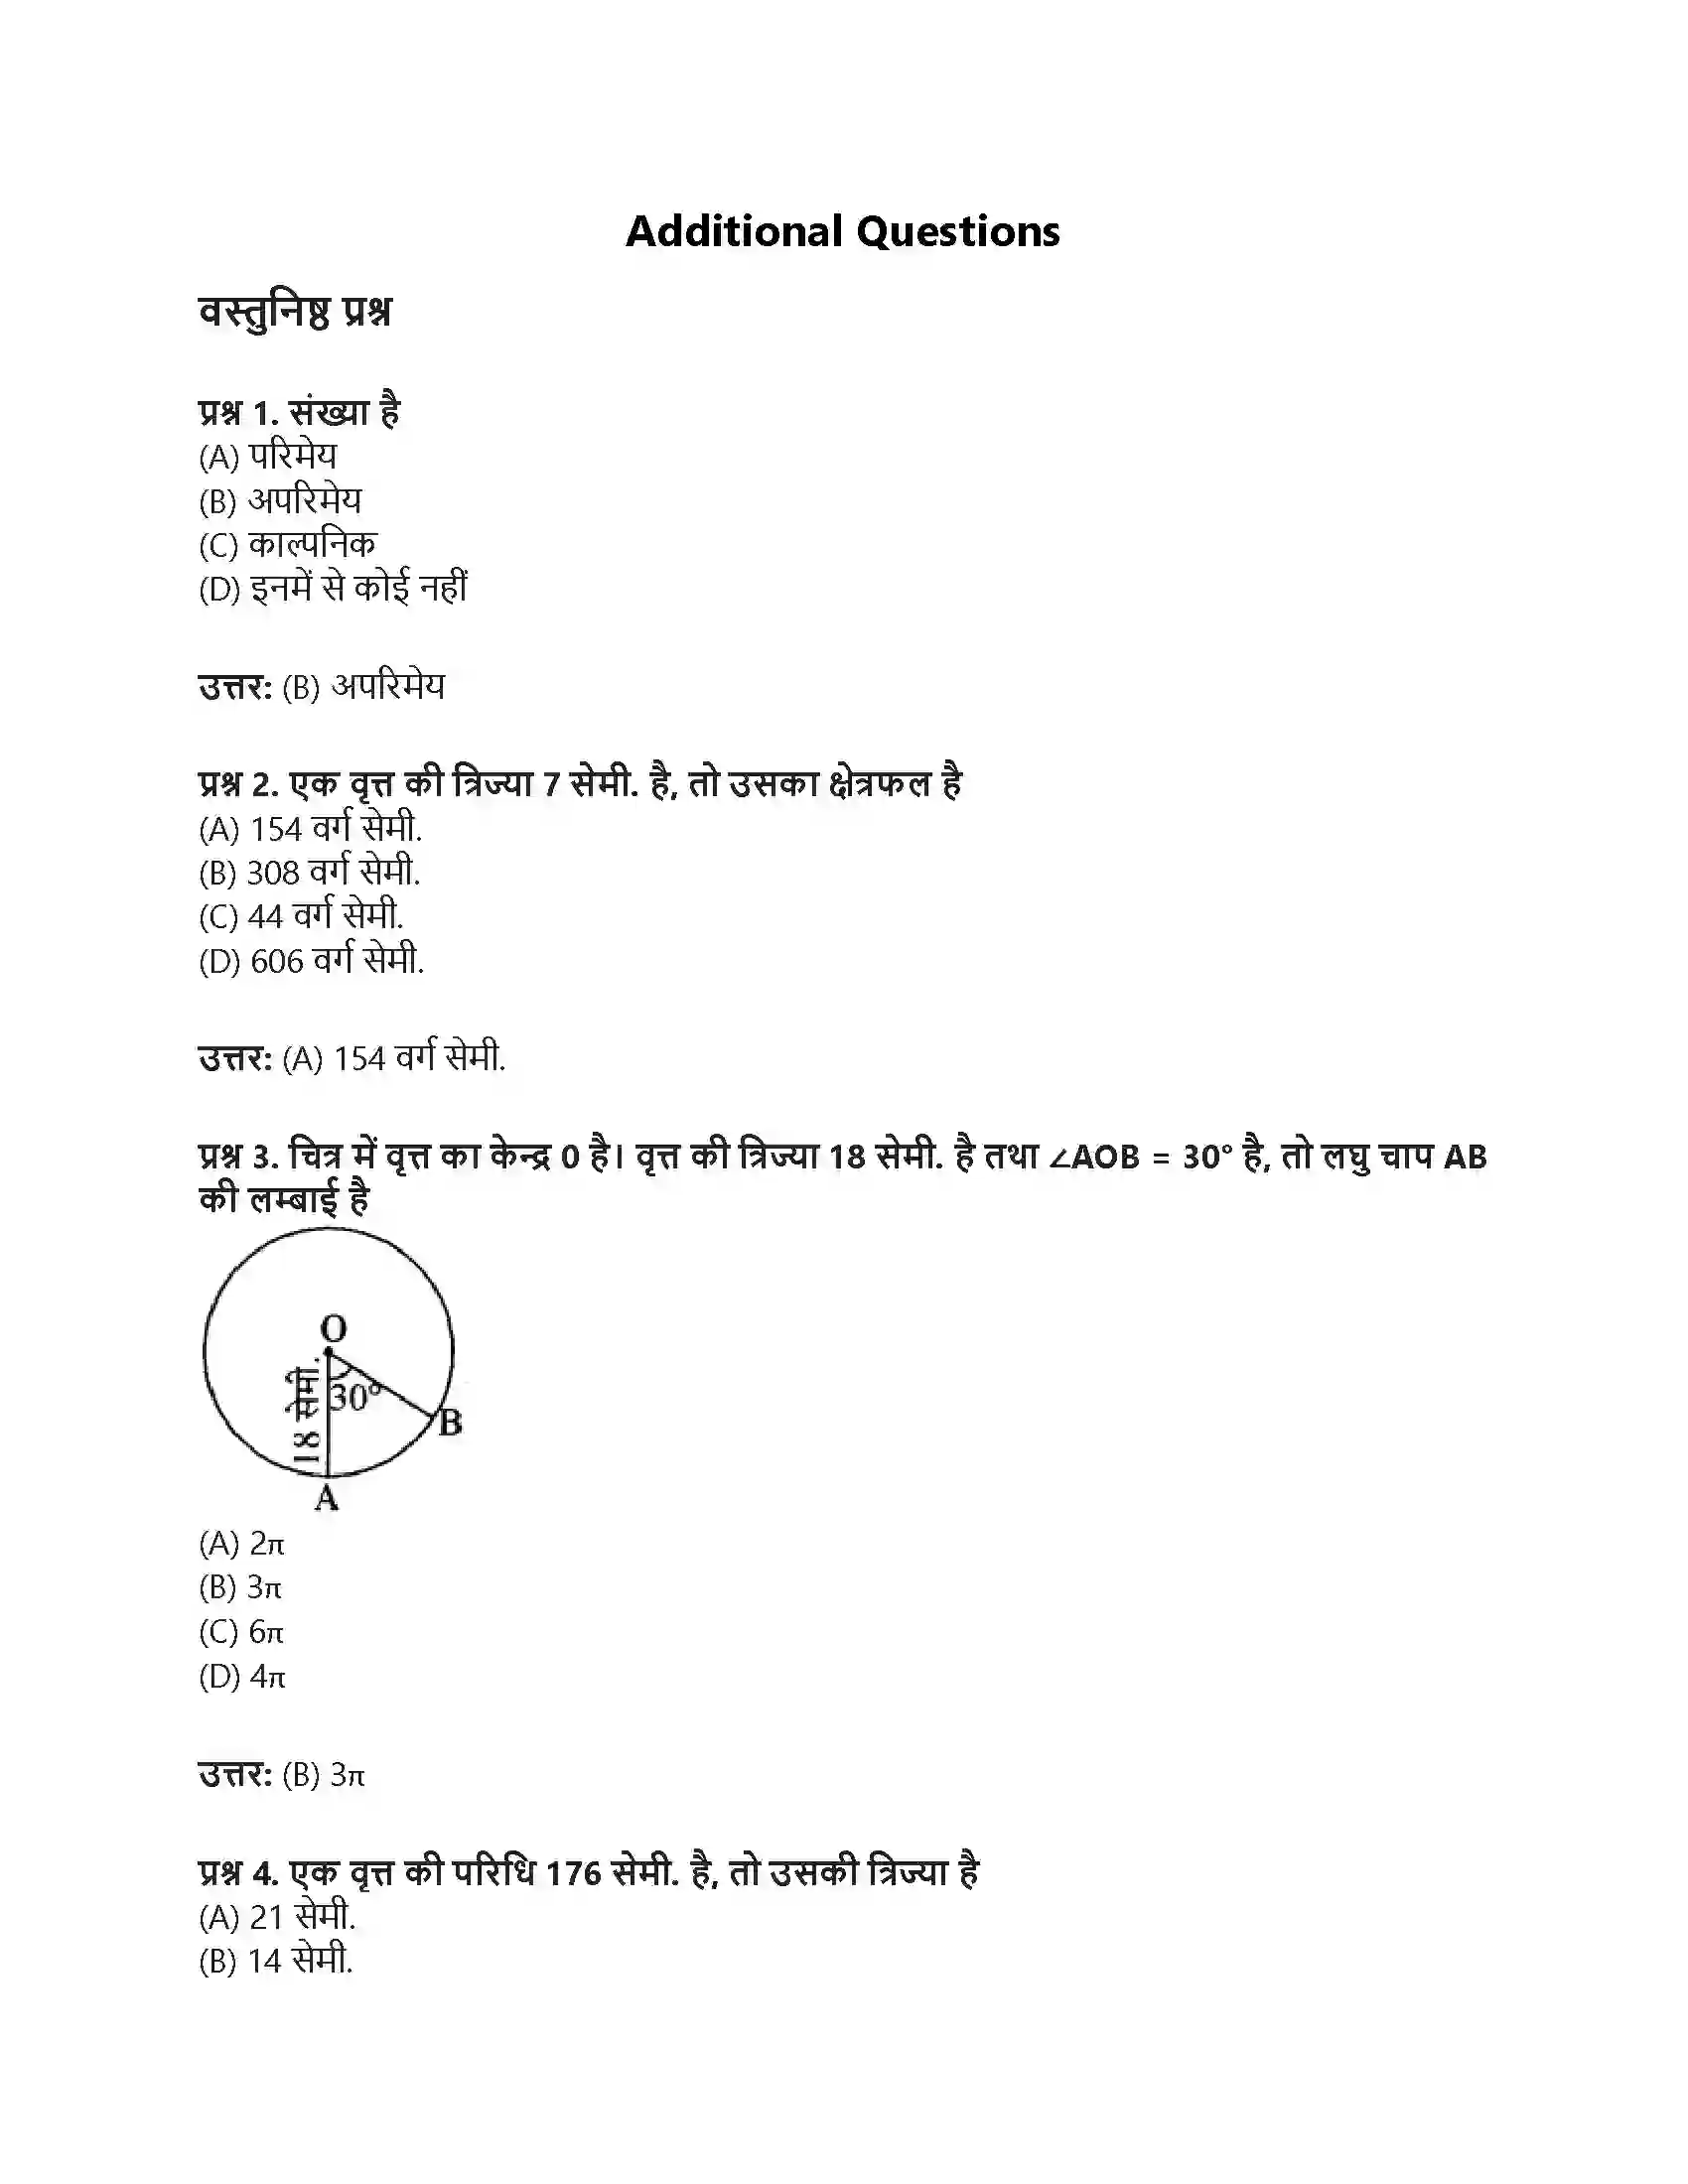 Additional Questions
वस्तुनिष्ठ प्रश्न
प्रश्न 1. संख्या है
(A) परिमेय
(B) अपरिमेय
(C) काल्पनिक
(D) इनमें से कोई नहीं
उत्तर: (B) अपरिमेय
प्रश्न 2. एक वृत्त की त्रिज्या 7 सेमी. है, तो उसका क्षेत्रफल है
(A) 154 वर्ग सेमी.
(B) 308 वर्ग सेमी.
(C) 44 वर्ग सेमी.
(D) 606 वर्ग सेमी.
उत्तर: (A) 154 वर्ग सेमी.
प्रश्न 3. चित्र में वृत्त का केन्द्र 0 है। वृत्त की त्रिज्या 18 सेमी. है तथा ∠AOB = 30° है, तो लघु चाप AB
की लम्बाई है
O
18 सेमी.
30°
B
A
(A) 2π
(B) 3π
(C) 6π
(D) 4π
उत्तर: (B) 3π
प्रश्न 4. एक वृत्त की परिधि 176 सेमी. है, तो उसकी त्रिज्या है
(A) 21 सेमी.
(B) 14 सेमी.